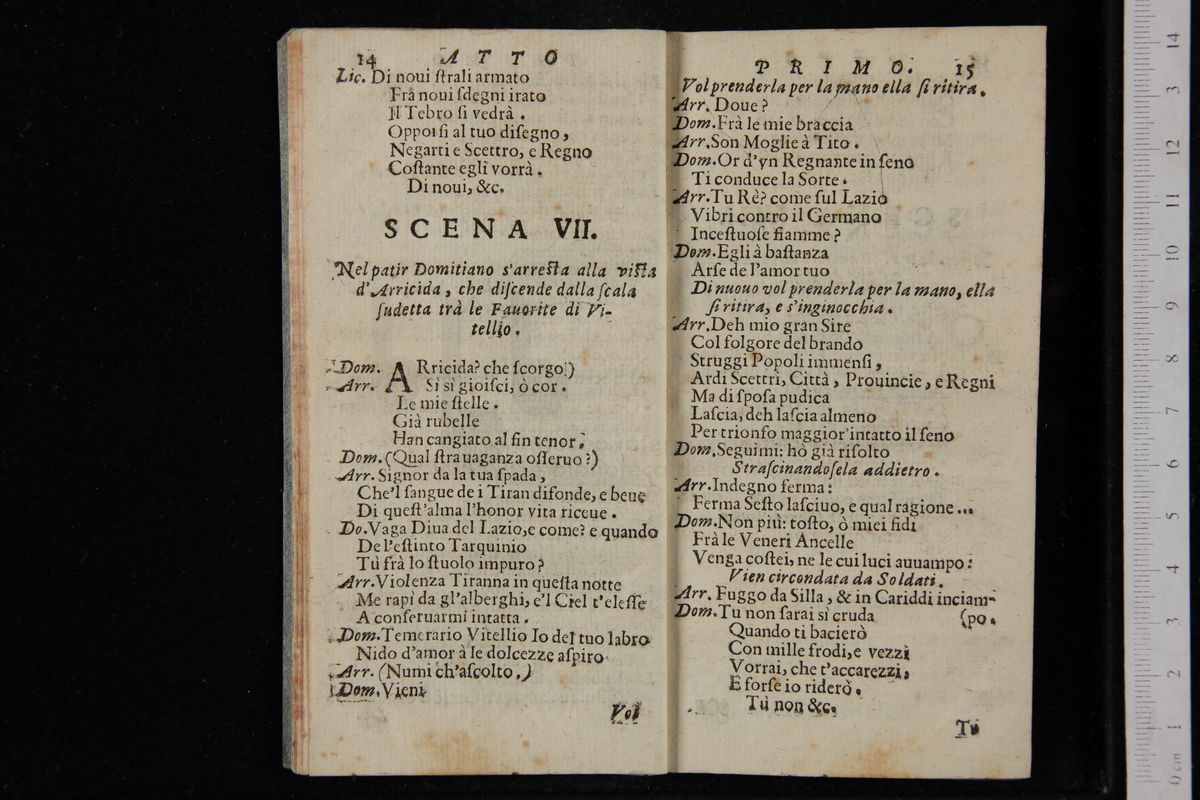 14 ATTO
Lic. Di noui ſtrali armato
Frà noui ſdegni irato
Il Tebro ſi vedrà.
Oppoiſi al tuo diſegno,
Negarti e Scettro, e Regno
Coſtante egli vorrà.
Di noui, &c.
SCENA VII.
Nel patir Domitiano s'arreſta alla viſta
d'Arricida, che diſcende dalla ſcala
ſudetta trà le Fauorite di Vi-
tellio.
Dom. ARricida? che ſcorgo!)
Arr. Si sì gioiſci, ò cor.
Le mie ſtelle.
Già rubelle
Han cangiato al fin tenor.
Dom. (Qual ſtrauaganza oſſeruo?)
Arr. Signor da la tua ſpada,
Che'l ſangue de i Tiran difonde, e beue
Di queſt'alma l'honor vita riceue.
Do. Vaga Diua del Lazio, e come? e quando
De l'eſtinto Tarquinio
Tù frà lo ſtuolo impuro?
Arr. Violenza Tiranna in queſta notte
Me rapì da gl'alberghi, e'l Ciel t'eleſſe
A conſeruarmi intatta.
Dom. Temerario Vitellio Io del tuo labro
Nido d'amor à le dolcezze aſpiro
Arr. (Numi ch'aſcolto.)
Dom. Vieni
Vol
PRIMO. 15
Vol prenderla per la mano ella ſi ritira.
Arr. Doue?
Dom. Frà le mie braccia
Arr. Son Moglie à Tito.
Dom. Or d'vn Regnante in ſeno
Ti conduce la Sorte.
Arr. Tu Rè? come ſul Lazio
Vibri contro il Germano
Inceſtuoſe fiamme?
Dom. Egli à baſtanza
Arſe de l'amor tuo
Di nuouo vol prenderla per la mano, ella
ſi ritira, e s'inginocchia.
Arr. Deh mio gran Sire
Col folgore del brando
Struggi Popoli immenſi,
Ardi Scettri, Città, Prouincie, e Regni
Ma di ſpoſa pudica
Laſcia, deh laſcia almeno
Per trionfo maggior'intatto il ſeno
Dom. Seguimi: hò già riſolto
Straſcinandoſela addietro.
Arr. Indegno ferma:
Ferma Seſto laſciuo, e qual ragione...
Dom. Non più: toſto, ò miei fidi
Frà le Veneri Ancelle
Venga coſtei, ne le cui luci auuampo:
Vien circondata da Soldati.
Arr. Fuggo da Silla, & in Cariddi inciam-
Dom. Tu non ſarai sì cruda (po.
Quando ti bacierò
Con mille frodi, e vezzi
Vorrai, che t'accarezzi,
E forſe io riderò.
Tù non &c.
Tu
0 cm 1 2 3 4 5 6 7 8 9 10 11 12 3 14